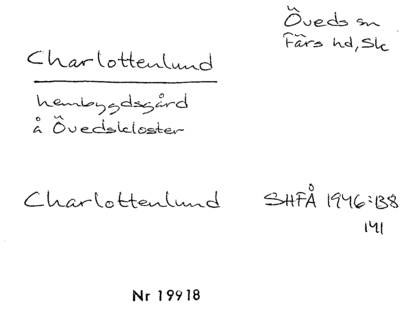 Öveds sn
Färs hd, Sk
Charlottenlund
hembygdsgård
å Övedskloster
Charlottenlund SHFÅ 1946:138
141
Nr 19918